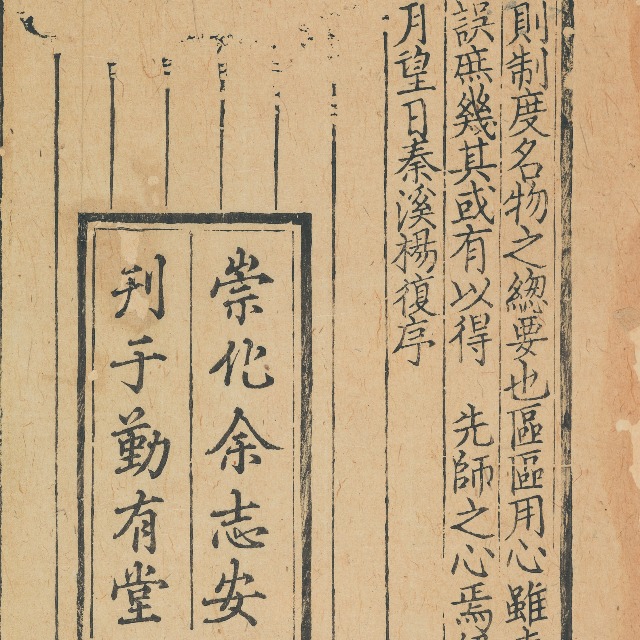 則制度名物之緫要也區區用心雖
誤庶幾其或有以得 先師之心焉
月望日秦溪楊復序
崇化余志安
刋于勤有堂